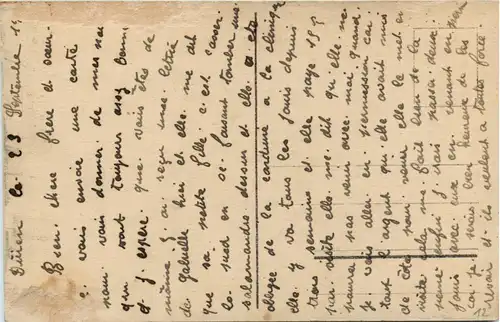 Düren le 23 Septembre 19
Bien chere frere et sœur
vais envoie une carte
pour vais donner de mes nou
qui vont toujours assez bonne
et j. espere que vais êtes de
même j. ai reçu une letrre
de gabrielle hier et elle me dit
que sa petite fille c. est casser
en se faisant tomber une
salamandre dessus et elle a ete
obligée de la conduire a la clinique
elle y va tous les jours depuis
trois semaines et elle paye 15 f
par visite elle me dit qu. elle ne
pourra pas venir avec moi quand
je vais aller en permission car
tout l. argent qu. elle avait mis
de cote pour venir elle le met en
visite cela me fait bien de la
peine enfin j. irai passer deux
jours avec eux en venant en perm
car je serais bien heureux de les
revoir et ils veulent a toutes force